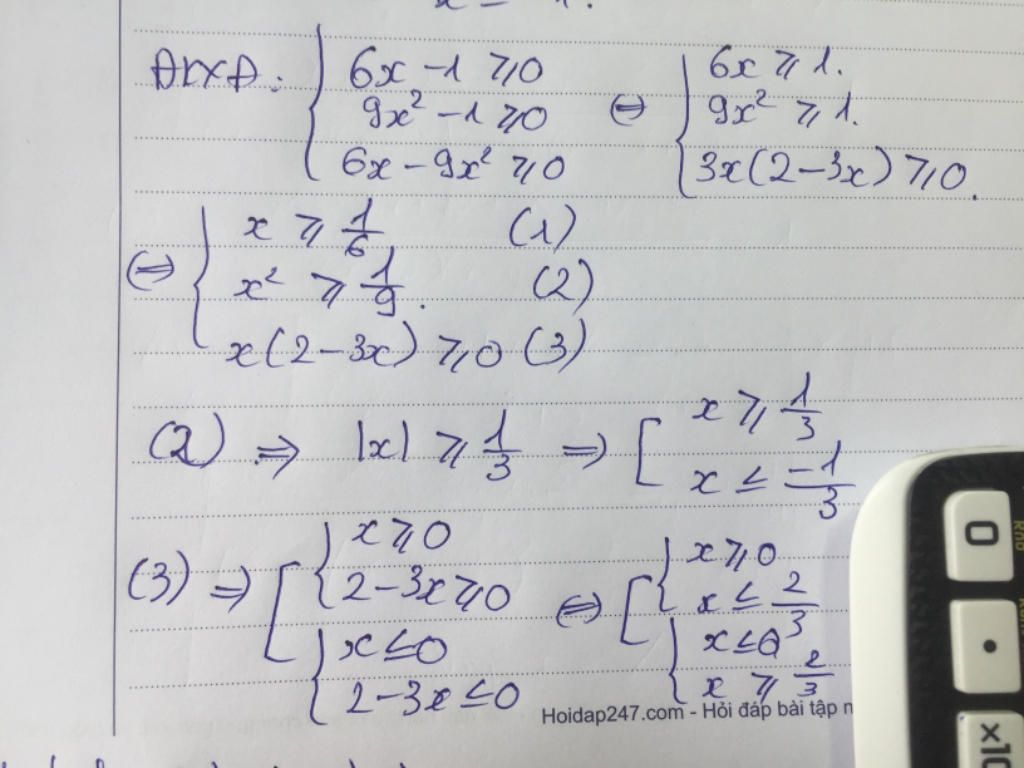 ĐKXĐ: { 6x - 1 ⩾ 0
9x² - 1 ⩾ 0
6x - 9x² ⩾ 0
⇔ { 6x ⩾ 1.
9x² ⩾ 1.
3x(2 - 3x) ⩾ 0.
⇔ { x ⩾ 1/6 (1)
x² ⩾ 1/9. (2)
x(2 - 3x) ⩾ 0 (3)
(2) ⇒ |x| ⩾ 1/3 ⇒ [ x ⩾ 1/3
x ≤ -1/3
(3) ⇒ [ { x ⩾ 0
2 - 3x ⩾ 0
{ x ≤ 0
2 - 3x ≤ 0
⇔ [ { x ⩾ 0
x ≤ 2/3
{ x ≤ 0
x ⩾ 2/3
Hoidap247.com - Hỏi đáp bài tập
0
RND
·
×10